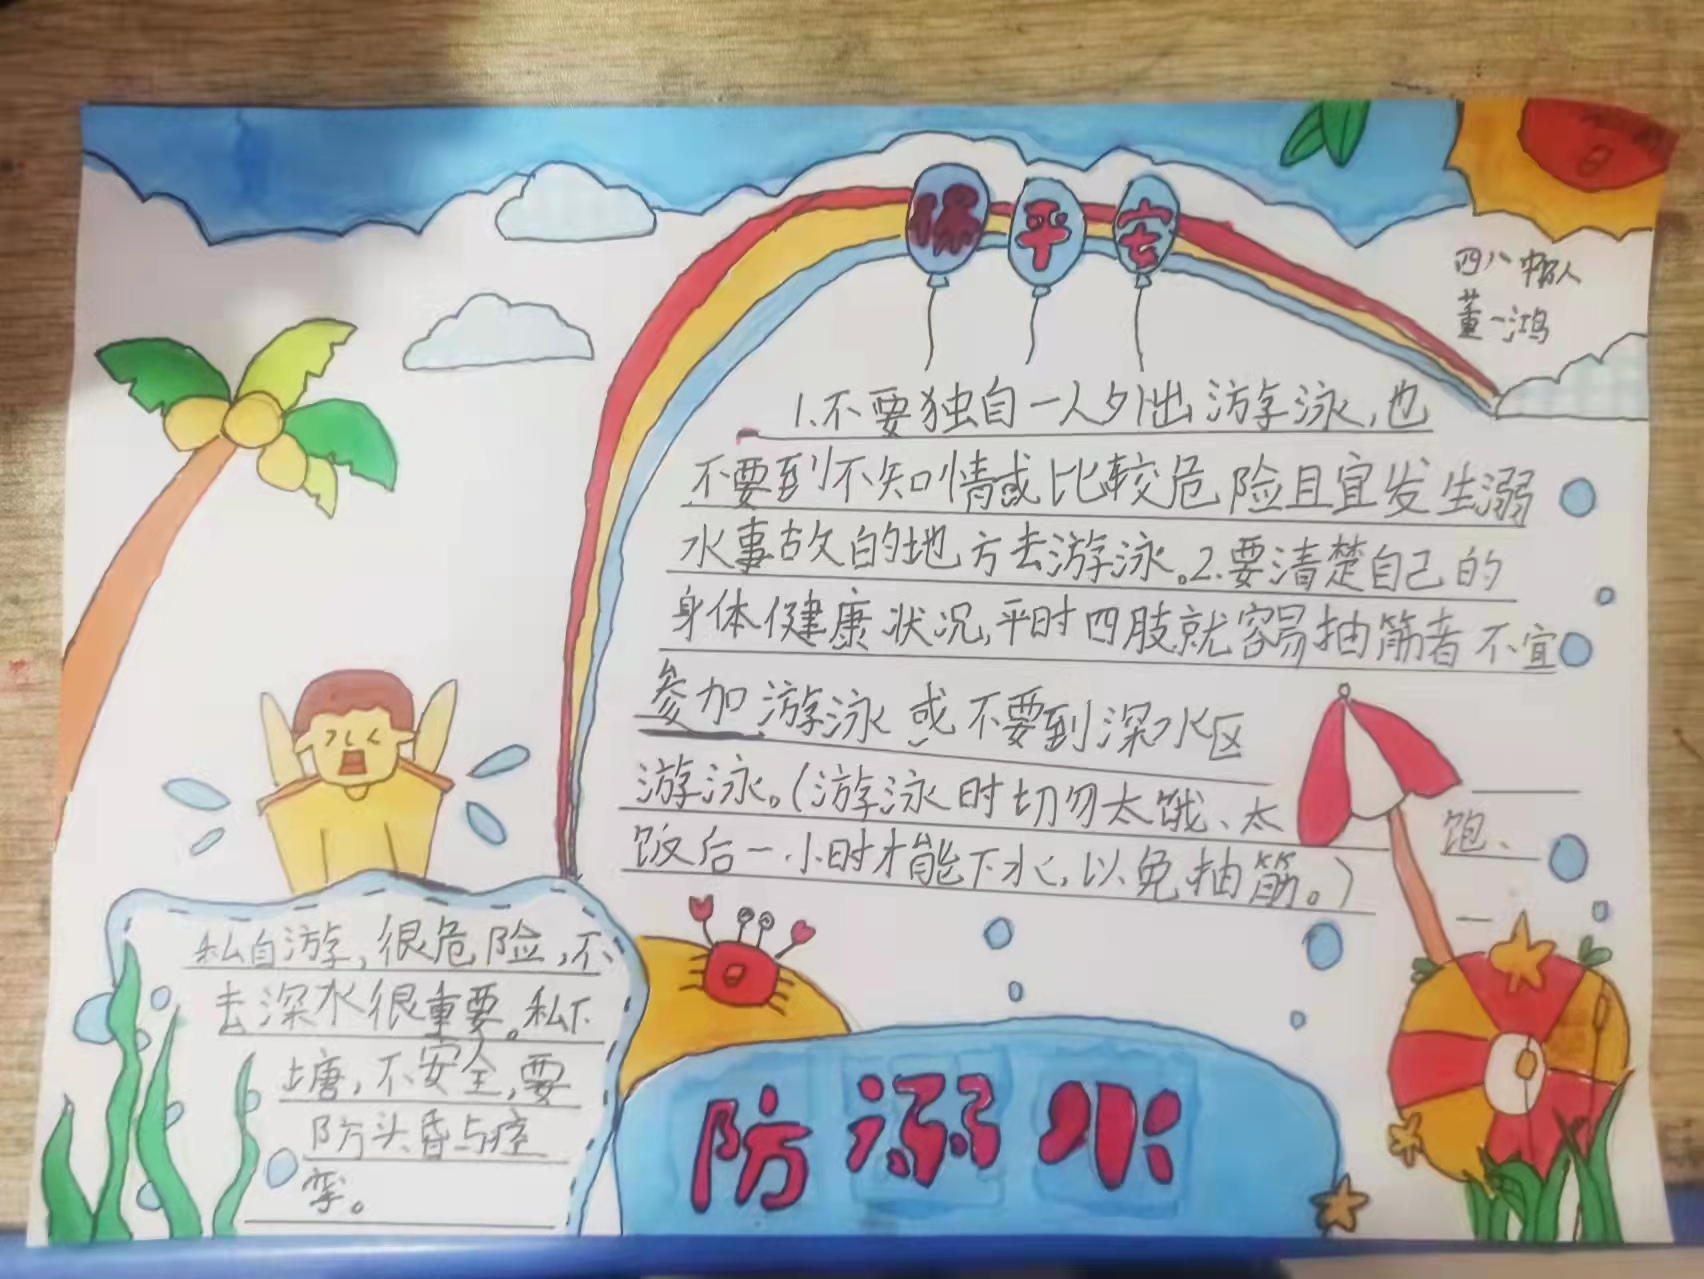 保平安
四八中队
董一鸿
1.不要独自一人外出游泳,也
不要到不知情或比较危险且宜发生溺
水事故的地方去游泳。2.要清楚自己的
身体健康状况,平时四肢就容易抽筋者不宜
参加游泳或不要到深水区
游泳。(游泳时切勿太饿、太饱、
饭后一小时才能下水,以免抽筋。)
私自游,很危险,不
去深水很重要。私下
塘,不安全,要
防头昏与痉
挛。
防溺水